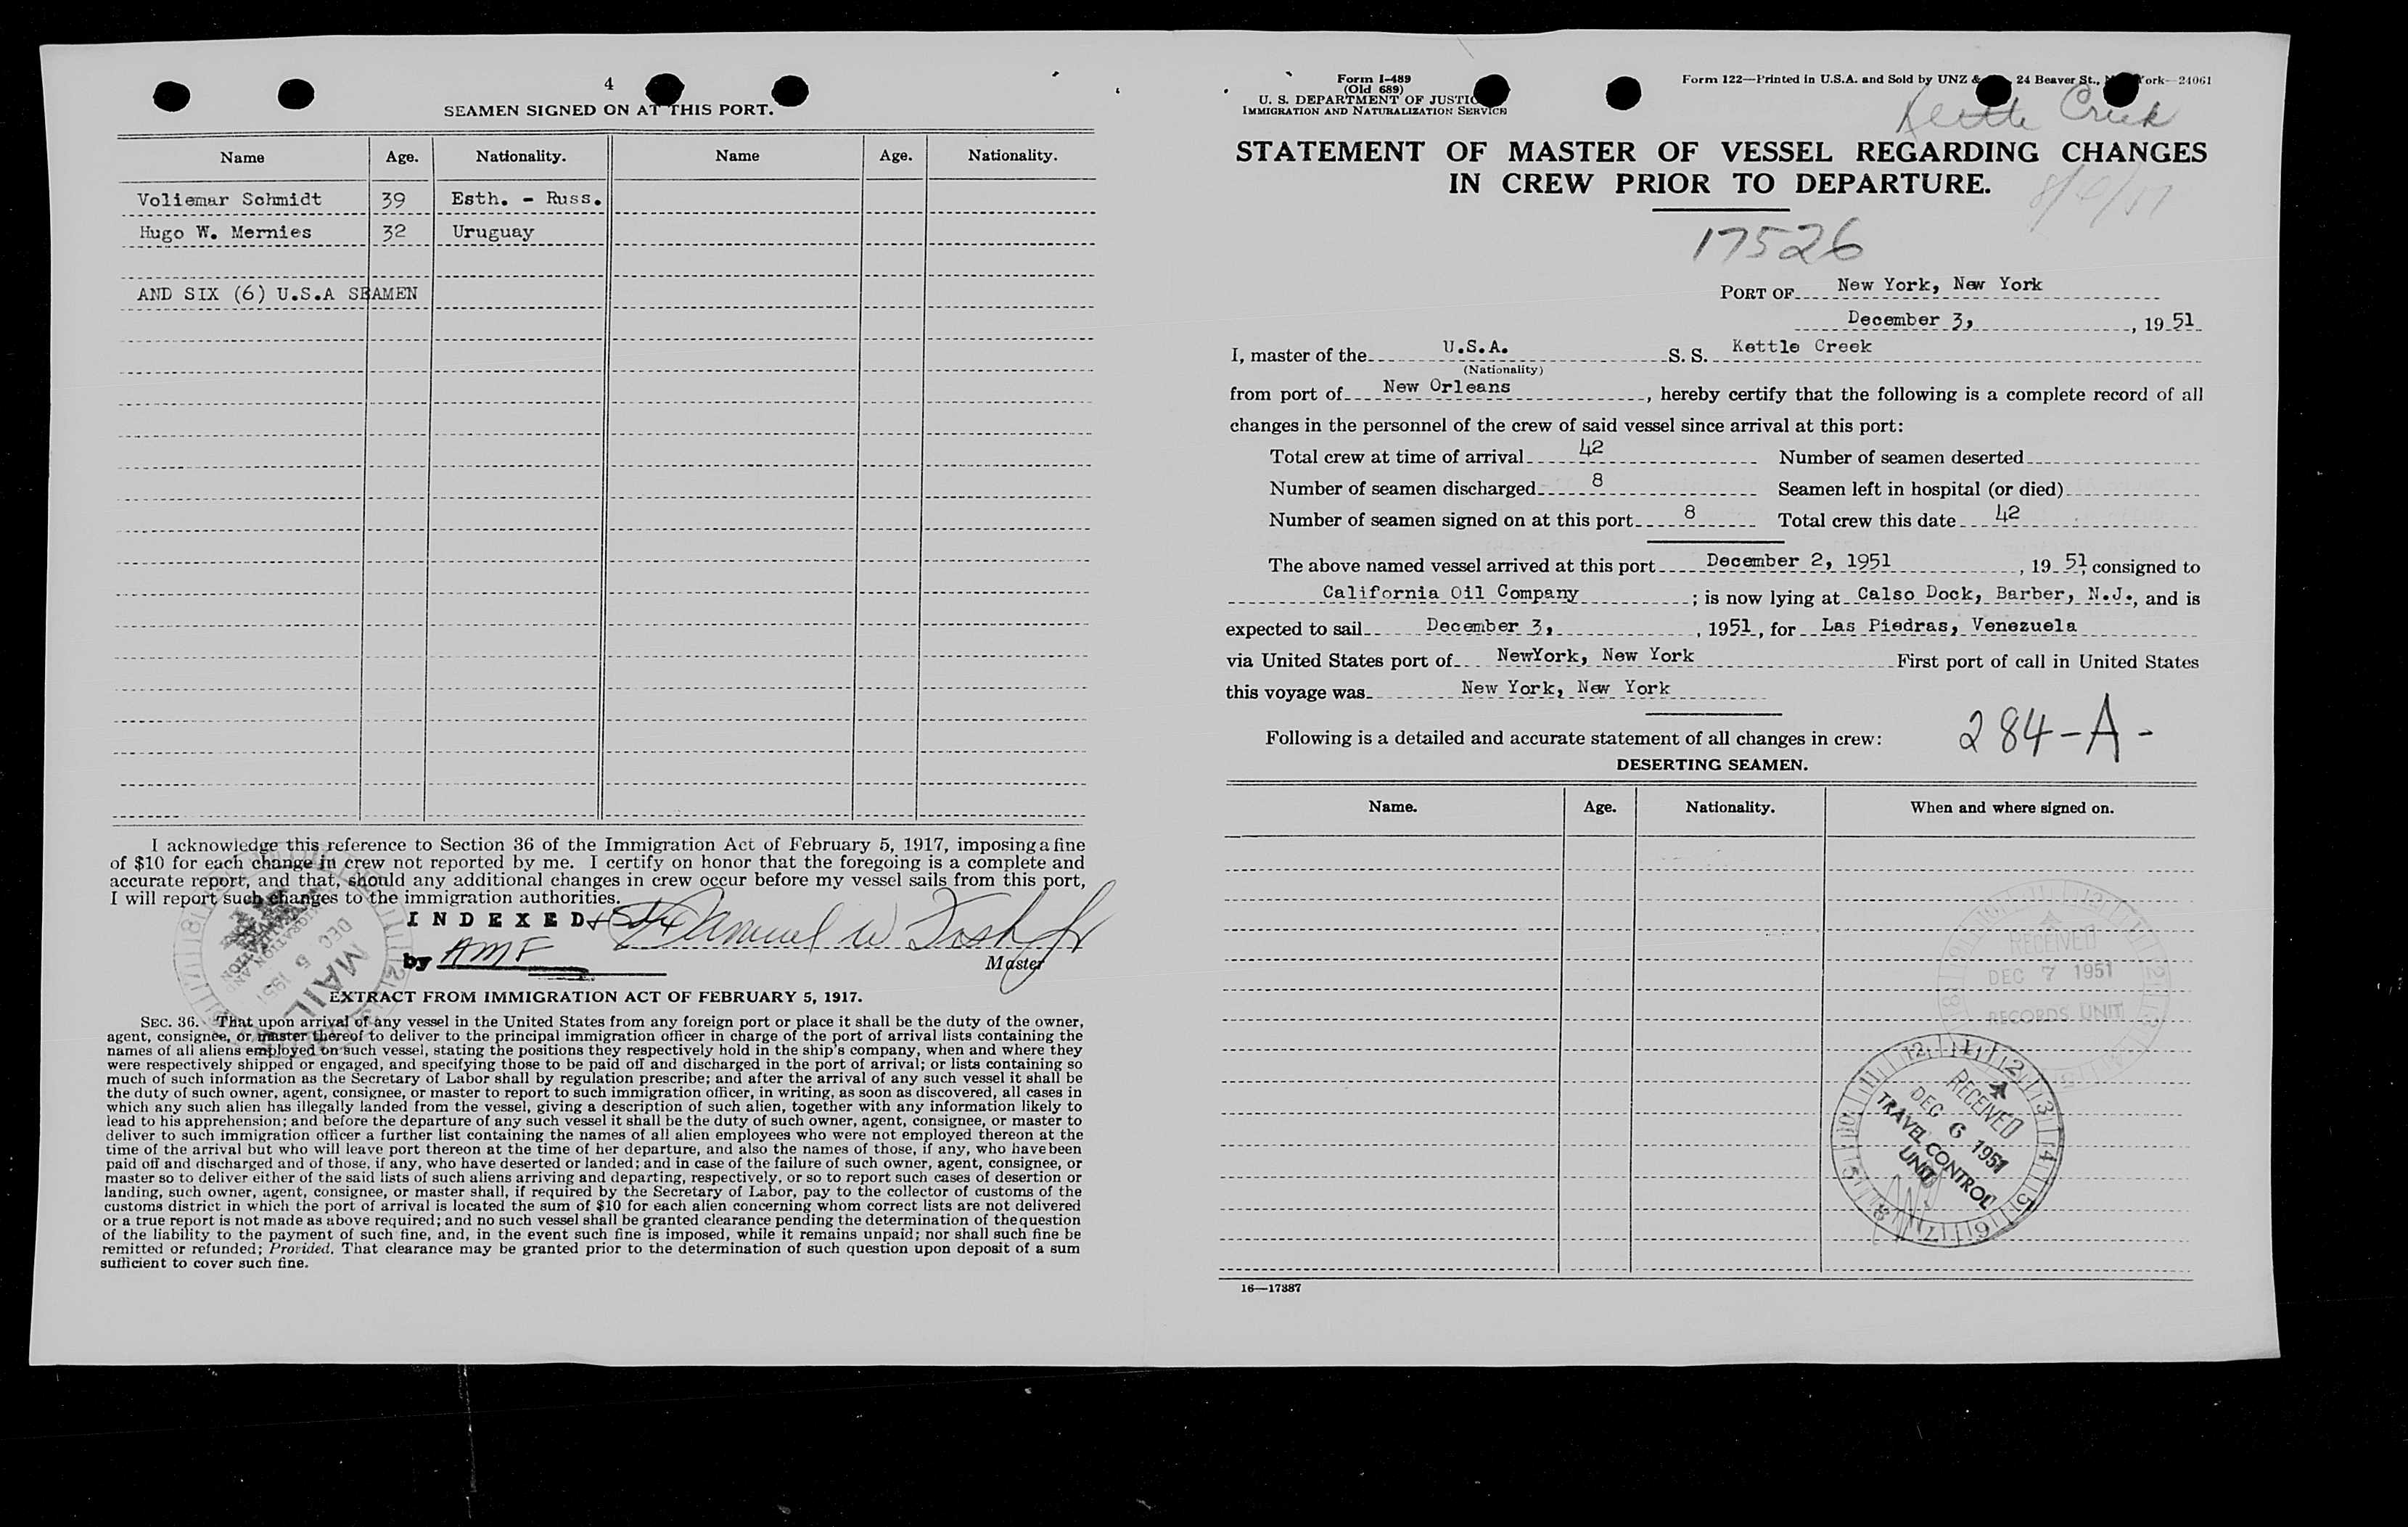 4
SEAMEN SIGNED ON AT THIS PORT.
Name Age. Nationality. Name Age. Nationality.
Voliemar Schmidt 39 Esth. - Russ.
Hugo W. Mernies 32 Uruguay
AND SIX (6) U.S.A SEAMEN
I acknowledge this reference to Section 36 of the Immigration Act of February 5, 1917, imposing a fine
of $10 for each change in crew not reported by me. I certify on honor that the foregoing is a complete and
accurate report, and that, should any additional changes in crew occur before my vessel sails from this port,
I will report such changes to the immigration authorities.
INDEXED
by AMF
Master
MAIL
DEC 5 1951
EXTRACT FROM IMMIGRATION ACT OF FEBRUARY 5, 1917.
SEC. 36. That upon arrival of any vessel in the United States from any foreign port or place it shall be the duty of the owner,
agent, consignee, or master thereof to deliver to the principal immigration officer in charge of the port of arrival lists containing the
names of all aliens employed on such vessel, stating the positions they respectively hold in the ship's company, when and where they
were respectively shipped or engaged, and specifying those to be paid off and discharged in the port of arrival; or lists containing so
much of such information as the Secretary of Labor shall by regulation prescribe; and after the arrival of any such vessel it shall be
the duty of such owner, agent, consignee, or master to report to such immigration officer, in writing, as soon as discovered, all cases in
which any such alien has illegally landed from the vessel, giving a description of such alien, together with any information likely to
lead to his apprehension; and before the departure of any such vessel it shall be the duty of such owner, agent, consignee, or master to
deliver to such immigration officer a further list containing the names of all alien employees who were not employed thereon at the
time of the arrival but who will leave port thereon at the time of her departure, and also the names of those, if any, who have been
paid off and discharged and of those, if any, who have deserted or landed; and in case of the failure of such owner, agent, consignee, or
master so to deliver either of the said lists of such aliens arriving and departing, respectively, or so to report such cases of desertion or
landing, such owner, agent, consignee, or master shall, if required by the Secretary of Labor, pay to the collector of customs of the
customs district in which the port of arrival is located the sum of $10 for each alien concerning whom correct lists are not delivered
or a true report is not made as above required; and no such vessel shall be granted clearance pending the determination of the question
of the liability to the payment of such fine, and, in the event such fine is imposed, while it remains unpaid; nor shall such fine be
remitted or refunded; Provided, That clearance may be granted prior to the determination of such question upon deposit of a sum
sufficient to cover such fine.
Form I-489
(Old 689)
U. S. DEPARTMENT OF JUSTICE
IMMIGRATION AND NATURALIZATION SERVICE
Form 122—Printed in U.S.A. and Sold by UNZ & 24 Beaver St., New York—24061
Kettle Creek
STATEMENT OF MASTER OF VESSEL REGARDING CHANGES
IN CREW PRIOR TO DEPARTURE.
17526
PORT OF New York, New York
December 3, , 19 51
I, master of the U.S.A. S. S. Kettle Creek
(Nationality)
from port of New Orleans , hereby certify that the following is a complete record of all
changes in the personnel of the crew of said vessel since arrival at this port:
Total crew at time of arrival 42 Number of seamen deserted
Number of seamen discharged 8 Seamen left in hospital (or died)
Number of seamen signed on at this port 8 Total crew this date 42
The above named vessel arrived at this port December 2, 1951 , 19 51 consigned to
California Oil Company ; is now lying at Calso Dock, Barber, N.J., and is
expected to sail December 3, , 1951, for Las Piedras, Venezuela
via United States port of NewYork, New York First port of call in United States
this voyage was New York, New York
284-A-
Following is a detailed and accurate statement of all changes in crew:
DESERTING SEAMEN.
Name. Age. Nationality. When and where signed on.
RECEIVED
DEC 7 1951
RECORDS UNIT
RECEIVED
DEC 6 1951
TRAVEL CONTROL
UNIT
16—17387